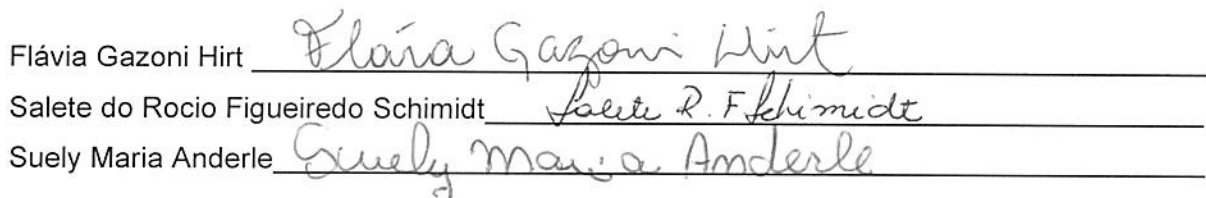 Flávia Gazoni Hirt Flávia Gazoni Hirt
Salete do Rocio Figueiredo Schimidt Salete R. F Schimidt
Suely Maria Anderle Suely Maria Anderle